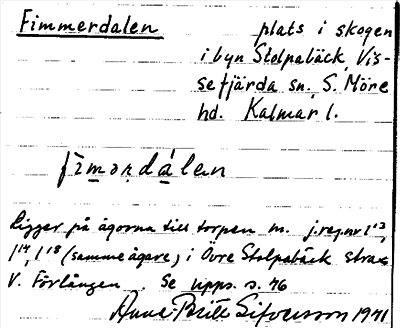 Fimmerdalen plats i skogen
i byn Stolpabäck, Vis-
sefjärda sn, S. Möre
hd. Kalmar l.
fìmərdálən
Ligger på ägorna till torpen m. j.reg.nr 1¹³,
1¹⁴, 1¹⁸ (samme ägare) i Övre Stolpabäck strax
V. Förlången. Se upps. s. 76
Anna Britt Sifversson 1941